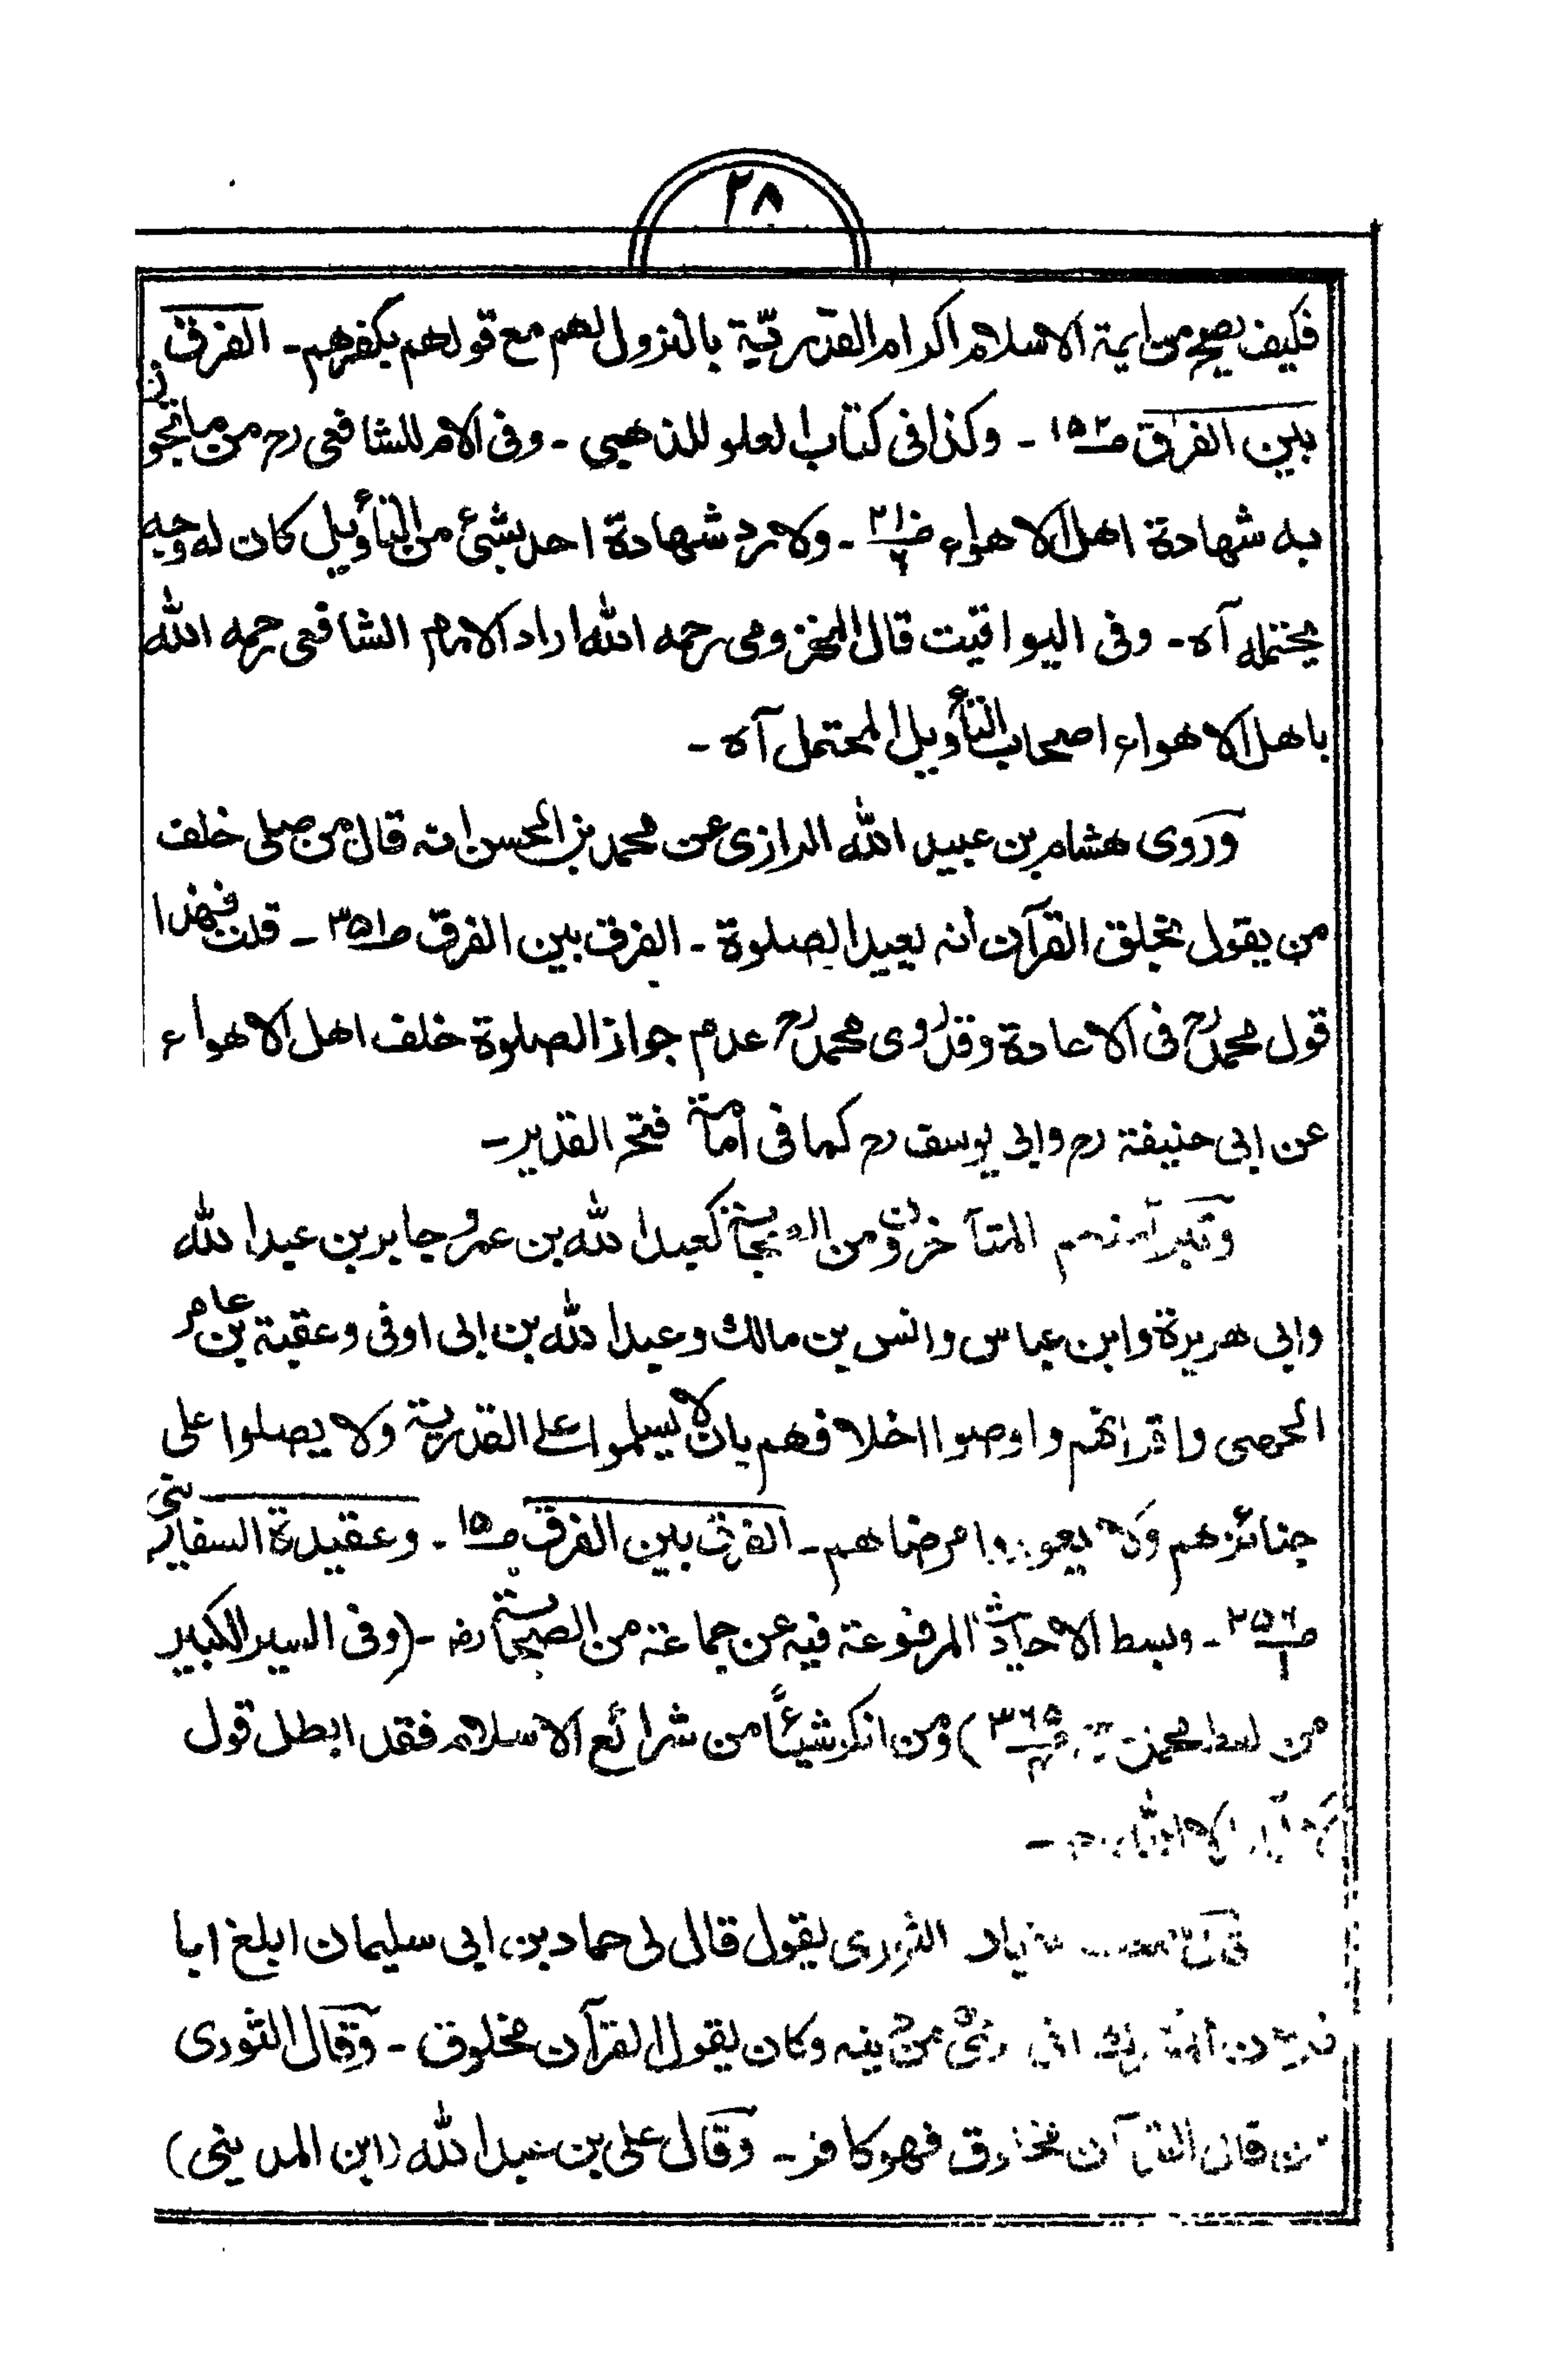 ٢٨
فكيف يصح من ايمة الاسلام اكرام القدرية بالنزول لهم مع قولهم بكفرهم - الفرق
بين الفرق صـ١٥٢ - وكذا فى كتاب العلو للذهبى - وفى الام للشافعى رح من ما تجوز
به شهادة اهل الاهواء صـ٢١٠/٦ - ولا رد شهادة احد بشئ من التأويل كان له وجه
يحتمله آه - وفى اليواقيت قال المخزومى رحمه الله اراد الامام الشافعى رحمه الله
باهل الاهواء اصحاب التأويل المحتمل آه -
وروى هشام بن عبيد الله الرازى عن محمد بن الحسن انه قال من صلى خلف
من يقول بخلق القرآن أنه يعيد الصلوة - الفرق بين الفرق صـ٣٥١ - قلت فهذا
قول محمد رح فى الاعادة وقد روى محمد رح عدم جواز الصلوة خلف اهل الاهواء
عن ابى حنيفة رح وابى يوسف رح كما فى أمامة فتح القدير -
وتبرأ منهم المتأخرون من الصحابة كعبد الله بن عمر وجابر بن عبد الله
وابى هريرة وابن عباس وانس بن مالك وعبد الله بن ابى اوفى وعقبة بن عامر
الجهنى واقرانهم واوصوا اخلافهم بان لا يسلموا على القدرية ولا يصلوا على
جنائزهم ولا يعودوا مرضاهم - الفرق بين الفرق صـ١٥ - وعقيدة السفارينى
صـ٢٥٦/١ - وبسط الاحاديث المرفوعة فيه عن جماعة من الصحابة رضـ - (وفى السير الكبير
من ... صـ٣٦٥/٤) ومن انكر شيئًا من شرائع الاسلام فقد ابطل قول
لا اله الا الله -
... الثورى يقول قال لى حماد بن ابى سليمان ابلغ ابا
... انى برئ من دينه وكان يقول القرآن مخلوق - وقال الثورى
من قال القرآن مخلوق فهو كافر - وقال على بن عبد الله (ابن المدينى)